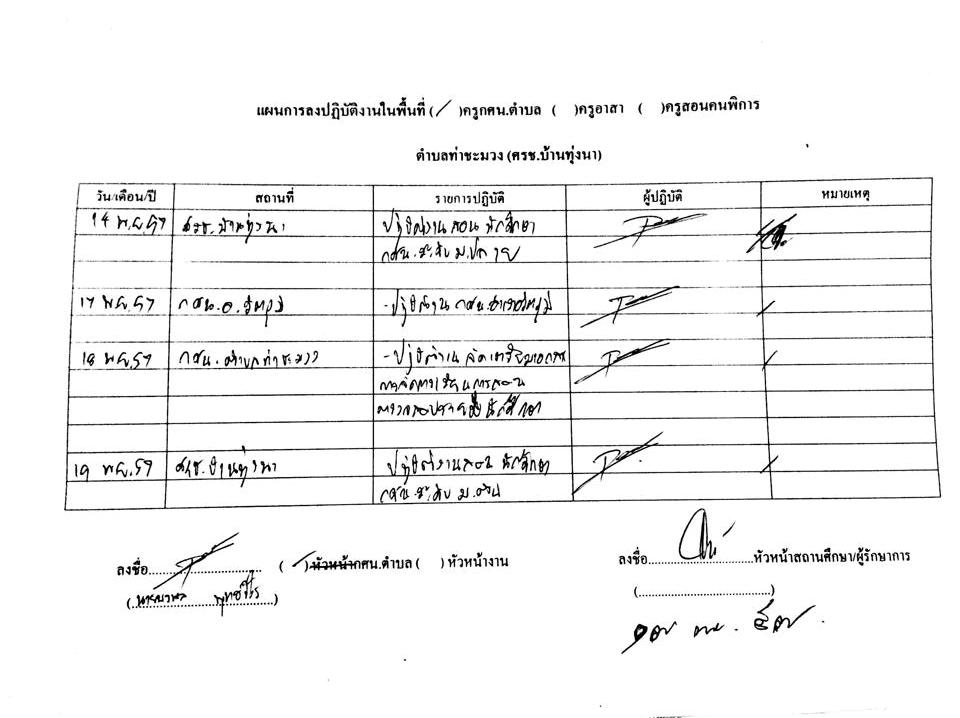 แผนการลงปฏิบัติงานในพื้นที่ (/)ครูกศน.ตำบล ( )ครูอาสา ( )ครูสอนคนพิการ
ตำบลท่าชะมวง (ศรช.บ้านทุ่งนา)
วัน/เดือน/ปี สถานที่ รายการปฏิบัติ ผู้ปฏิบัติ หมายเหตุ
14 พ.ย.57 ศรช.บ้านทุ่งนา ปฏิบัติงานสอน นักศึกษา
กศน.ระดับ ม.ปลาย
17 พ.ย. 57 กศน.อ.รัตภูมิ -ปฏิบัติงาน กศน.อำเภอรัตภูมิ /
18 พ.ย. 57 กศน.ตำบลท่าชะมวง -ปฏิบัติงาน จัดเตรียมเอกสาร /
การจัดการเรียนการสอน
นักศึกษา
19 พ.ย. 57 ศรช.บ้านทุ่งนา ปฏิบัติงานสอน นักศึกษา /
กศน.ระดับ ม.ต้น
ลงชื่อ.............................. (/)หัวหน้ากศน.ตำบล ( ) หัวหน้างาน
ลงชื่อ..............................หัวหน้าสถานศึกษา/ผู้รักษาการ
(......................................)
๑๗ พย. ๕๗.